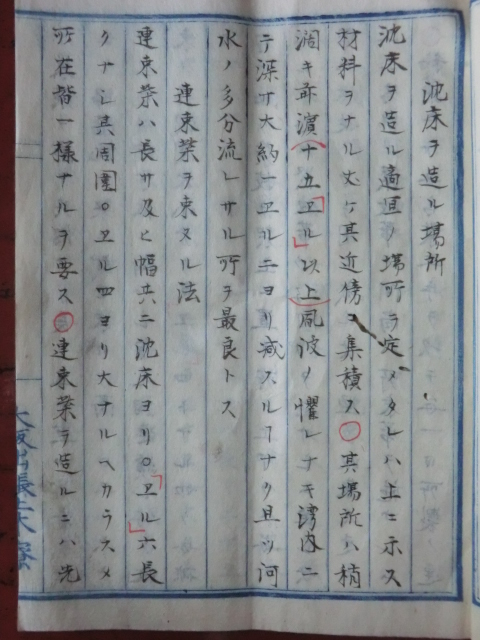 沈床ヲ造ル場所
沈床ヲ造ル適宜ノ場所ヲ定メタレハ上ニ示ス
材料ヲナル丈ケ其近傍ヱ集積ス〇其場所ハ稍
濶キ濱(十五「ヱル」以上)風波ノ懼レナキ湾内ニ
テ深サ大約一ヱル二ヨリ減スルヿナク且ツ河
水ノ多分流レサル所ヲ最良トス
連束葉ヲ束ヌル法
連束葉ハ長サ及ヒ幅共ニ沈床ヨリ〇「ヱル」六長
クナシ其周圍〇ヱル四ヨリ大ナルヘカラスメ
所在皆一様ナルヲ要ス〇連束葉ヲ造ルニハ先
大阪出張土木寮